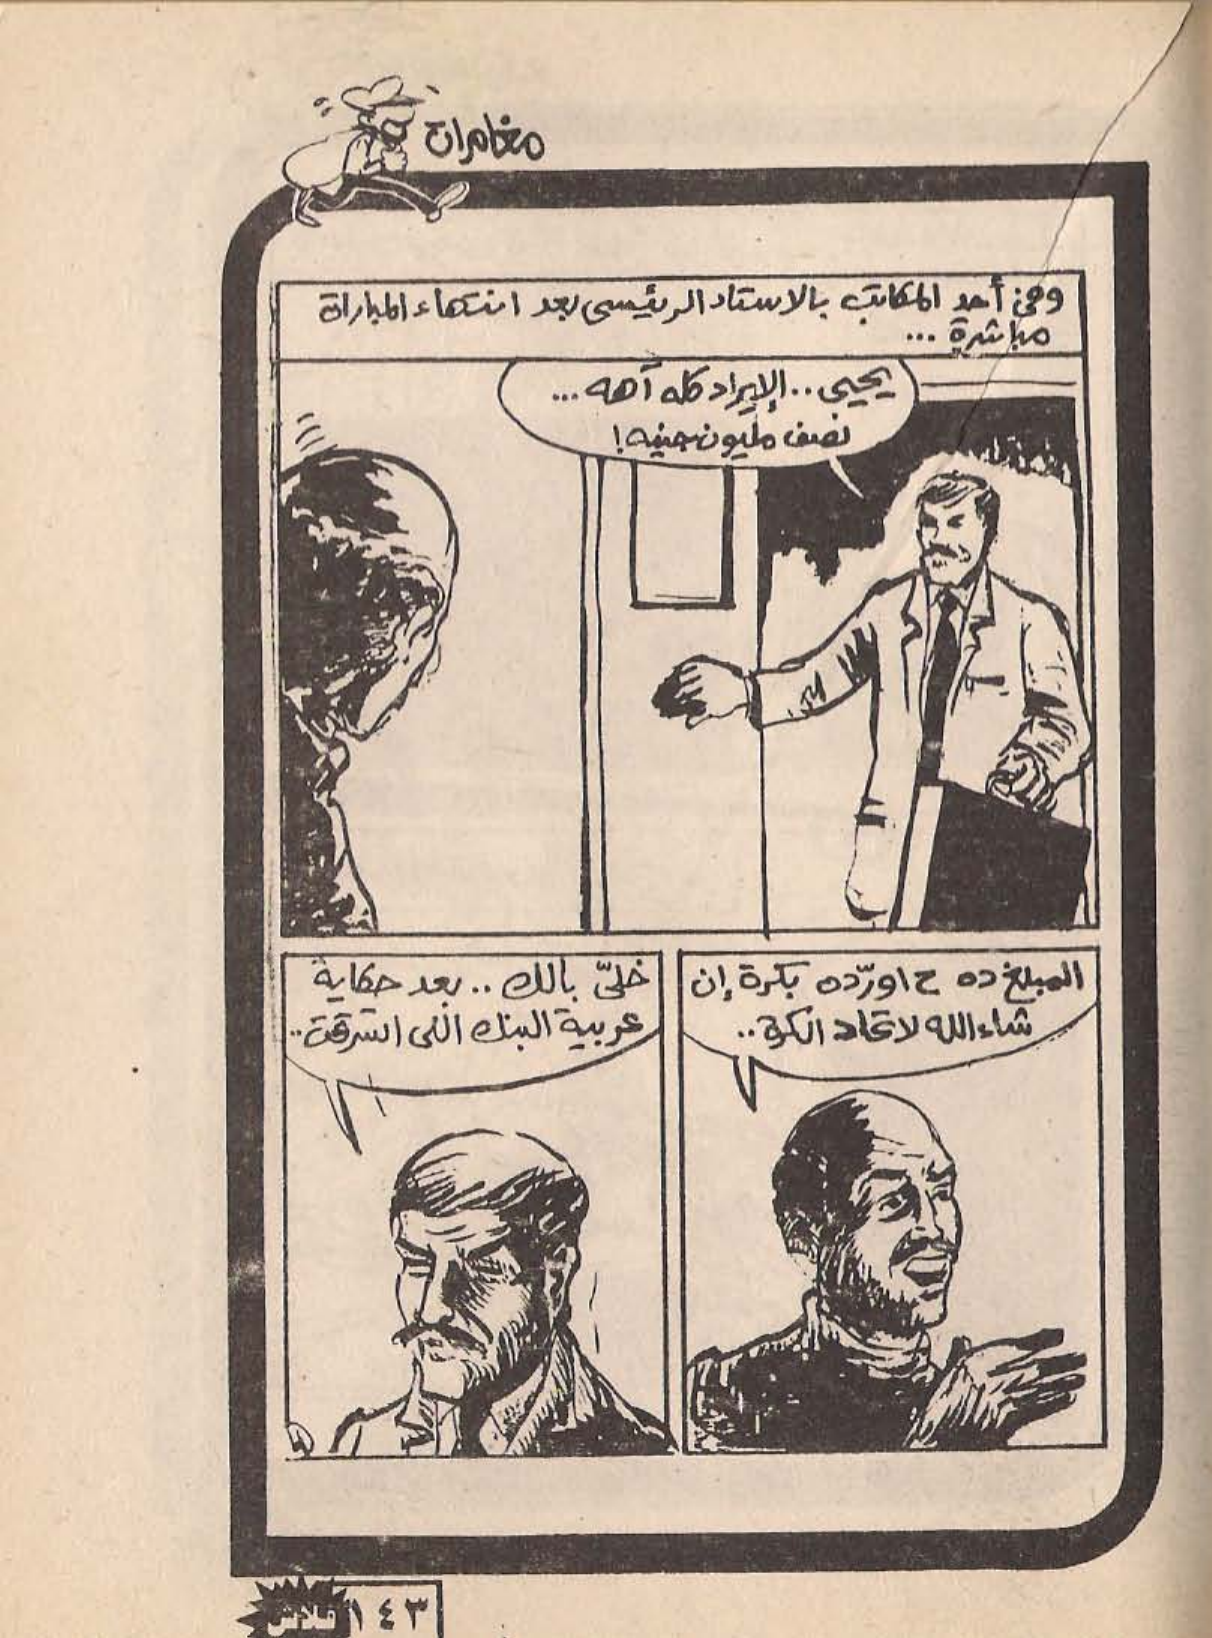 مغامرات
وفي أحد المكاتب بالاستاد الرئيسى بعد انتهاء المباراة
مباشرة ...
يحيى .. الإيراد كله أهه ...
نصف مليون جنيه !
المبلغ ده ح اورّده بكرة إن
شاء الله لاتحاد الكرة ..
خلىّ بالك .. بعد حكاية
عربية البنك اللى اتسرقت ..
فلاش ١٤٣